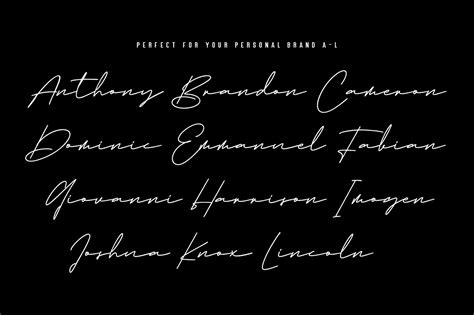 PERFECT FOR YOUR PERSONAL BRAND A-L
Anthony Brandon Cameron
Dominic Emmanuel Fabian
Giovanni Harrison Imogen
Joshua Knox Lincoln